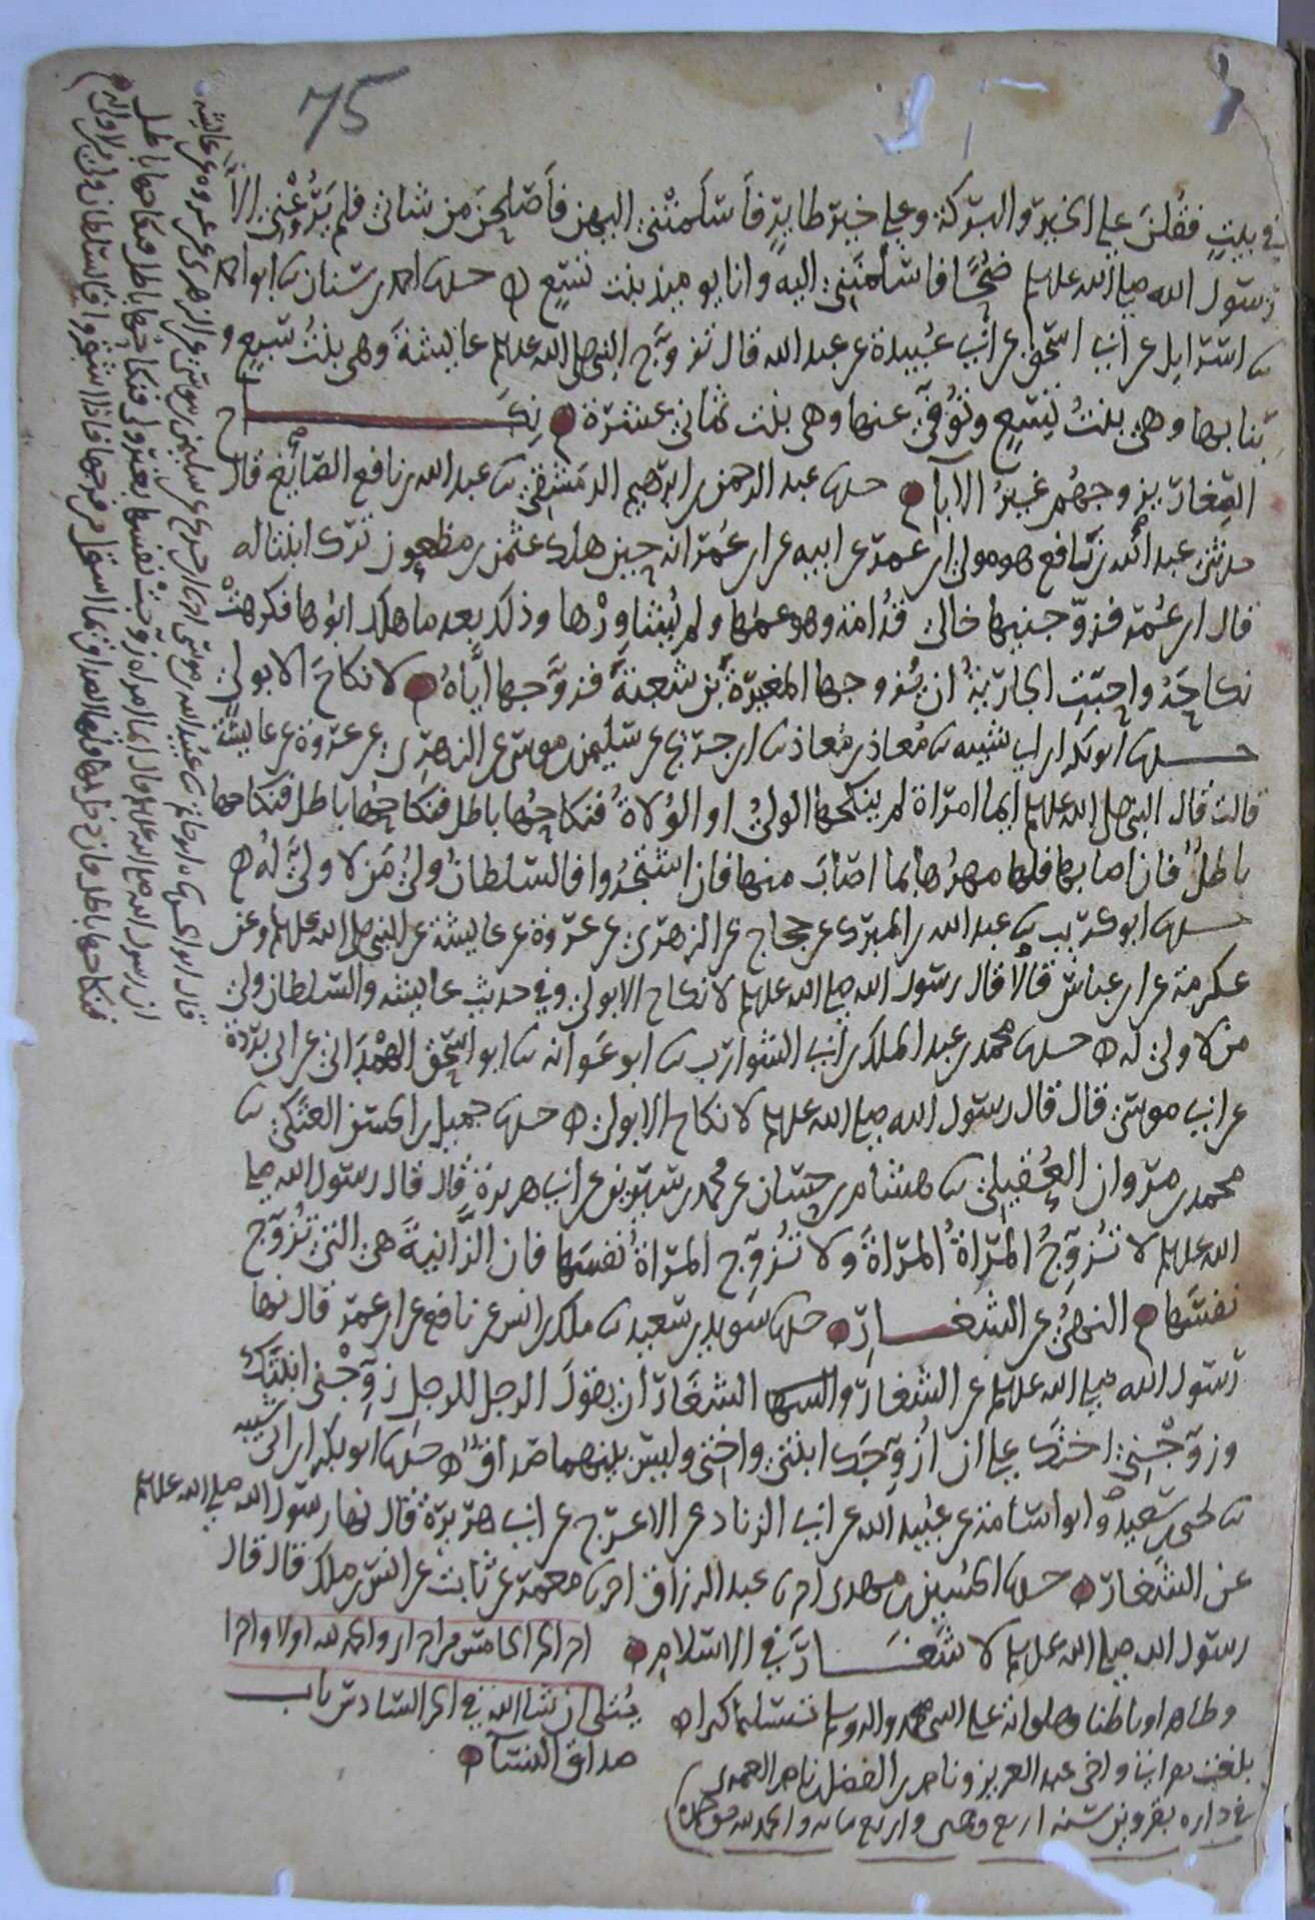 75
في بيتٍ فقُلنَ علي الخير والبركة وعلي خير طايرٍ فأسلمتني اليهن فأصلحن من شاني فلم يَرُعْني الا
رسول الله صلى الله علىه ضُحًى فاسلمنني اليه وانا يوميذ بنت تسع حدثنا احمد بن سنان ثنا ابو احمد
ثنا اسرايل عن ابي اسحق عن ابي عُبيدة عن عبد الله قال تزوج النبي صلى الله علىه عايشة وهي بنتُ سبع و
بنا بها وهي بنتُ تسعٍ وتُوُفيَ عنها وهي بنت ثماني عشرة نكاح
الصِّغار يزوجهم غيرُ الابا حدثنا عبد الرحمن بن ابرهيم الدمشقي ثنا عبد الله بن نافع الصّائغ قال
حدثني عبد الله بن نافع هو مولى ابن عمر عن ابيه عن ابن عُمر انه حين هلك عثمن بن مظعون ترك ابنتا له
قال ابن عُمر فزوّجنيها خالي قُدامة وهو عمّها ولم يُشاوِرْها وذلك بعد ما هلك ابوها فكرهت
نكاحَهُ واحبّتِ الجاريةُ ان يُزوجها المغيرةَ بن شعبة فزوَّجها اياهُ لا نكاحَ الا بولي
حدثنا ابو بكر ابن ابي شيبه ثنا مُعاذ بن معاذ ثنا ابن جريج عن سليمن بن موسى عن الزهري عن عروة عن عايشة
قالت قال النبي صلى الله علىه ايما امراة لم يُنكحها الوليُّ او الوُلاةُ فنكاحُها باطل فنكاحُها باطل فنكاحها
باطلٌ فان اصابها فلها مهرُها بما اصابَ منها فان اشتجروا فالسلطانُ وليُّ مَن لا وليَّ لهُ
حدثنا ابو كريب ثنا عبد الله بن المبرك عن حجاج عن الزهري عن عروة عن عايشة عن النبي صلى الله علىه وعن
عكرمة عن ابن عباس قالا قال رسول الله صلى الله علىه لا نكاح الا بولي وفي حديث عايشه والسلطان ولي
من لا ولي له حدثنا محمد بن عبد الملك بن ابي الشوارب ثنا ابو عَوانه ثنا ابو اسحق الهمْدَاني عن ابي بردة
عن ابي موسى قال قال رسول الله صلى الله علىه لا نكاح الا بولي حدثنا جميل بن الحسن العتكي ثنا
محمد بن مروان العُقيلي ثنا هشام بن حسان عن محمد بن سيرين عن ابي هريرة قال قال رسول الله صلى
الله علىه لا تُزوِّجُ المراةُ المراةَ ولا تُزوِّج المراةُ نفسَها فان الزَّانيةَ هي التي تُزوِّج
نفسَها النهيُ عن الشغار حدثنا سويد بن سعيد ثنا ملك بن انس عن نافع عن ابن عمر قال نها
رسول الله صلى الله علىه عن الشغار والشغَار ان يقولَ الرجل للرجل زوِّجْني ابنتَك
وزوِّجْني اختك على ان اُزوِّجَك ابنتي واختي وليس بينهما صداقٌ حدثنا ابو بكر ابن ابي شيبه
ثنا يحيى بن سعيد وابو اسامة عن عُبيد الله عن ابي الزناد عن الاعرج عن ابي هريرة قال نها رسول الله صلى الله علىه
عن الشغار حدثنا الحُسين بن مهدي انا عبد الرزاق انا معمر عن ثابت عن انس بن ملك قال قال
رسول الله صلى الله علىه لا شغَار في الاسلام اخر الجز الخامس من اجزا والحمد لله اولا واخرا
وظاهرا وباطنا وصلواته على النبي محمد واله وسلم تسليما كثيرا يُتلى ان شا الله في الجز السادس باب
صداق النسآ
بلغت بقراتي واخي عبد العزيز وناصر
في داره بقزوين سنه اربع واربع مايه والحمد لله
قال ابو الحسن ثنا ابو حاتم ثنا عبيد الله بن موسى انا ابن جريج عن سليمن بن موسى عن الزهري عن عروه عن عايشه
ان رسول الله صلى الله علىه قال ايما امراه زوجت نفسها بغير ولي فنكاحها باطل فنكاحها باطل
فنكاحها باطل فان دخل بها فلها الصداق بما استحل من فرجها فاذا اشتجروا فالسلطان ولي من لا ولي له